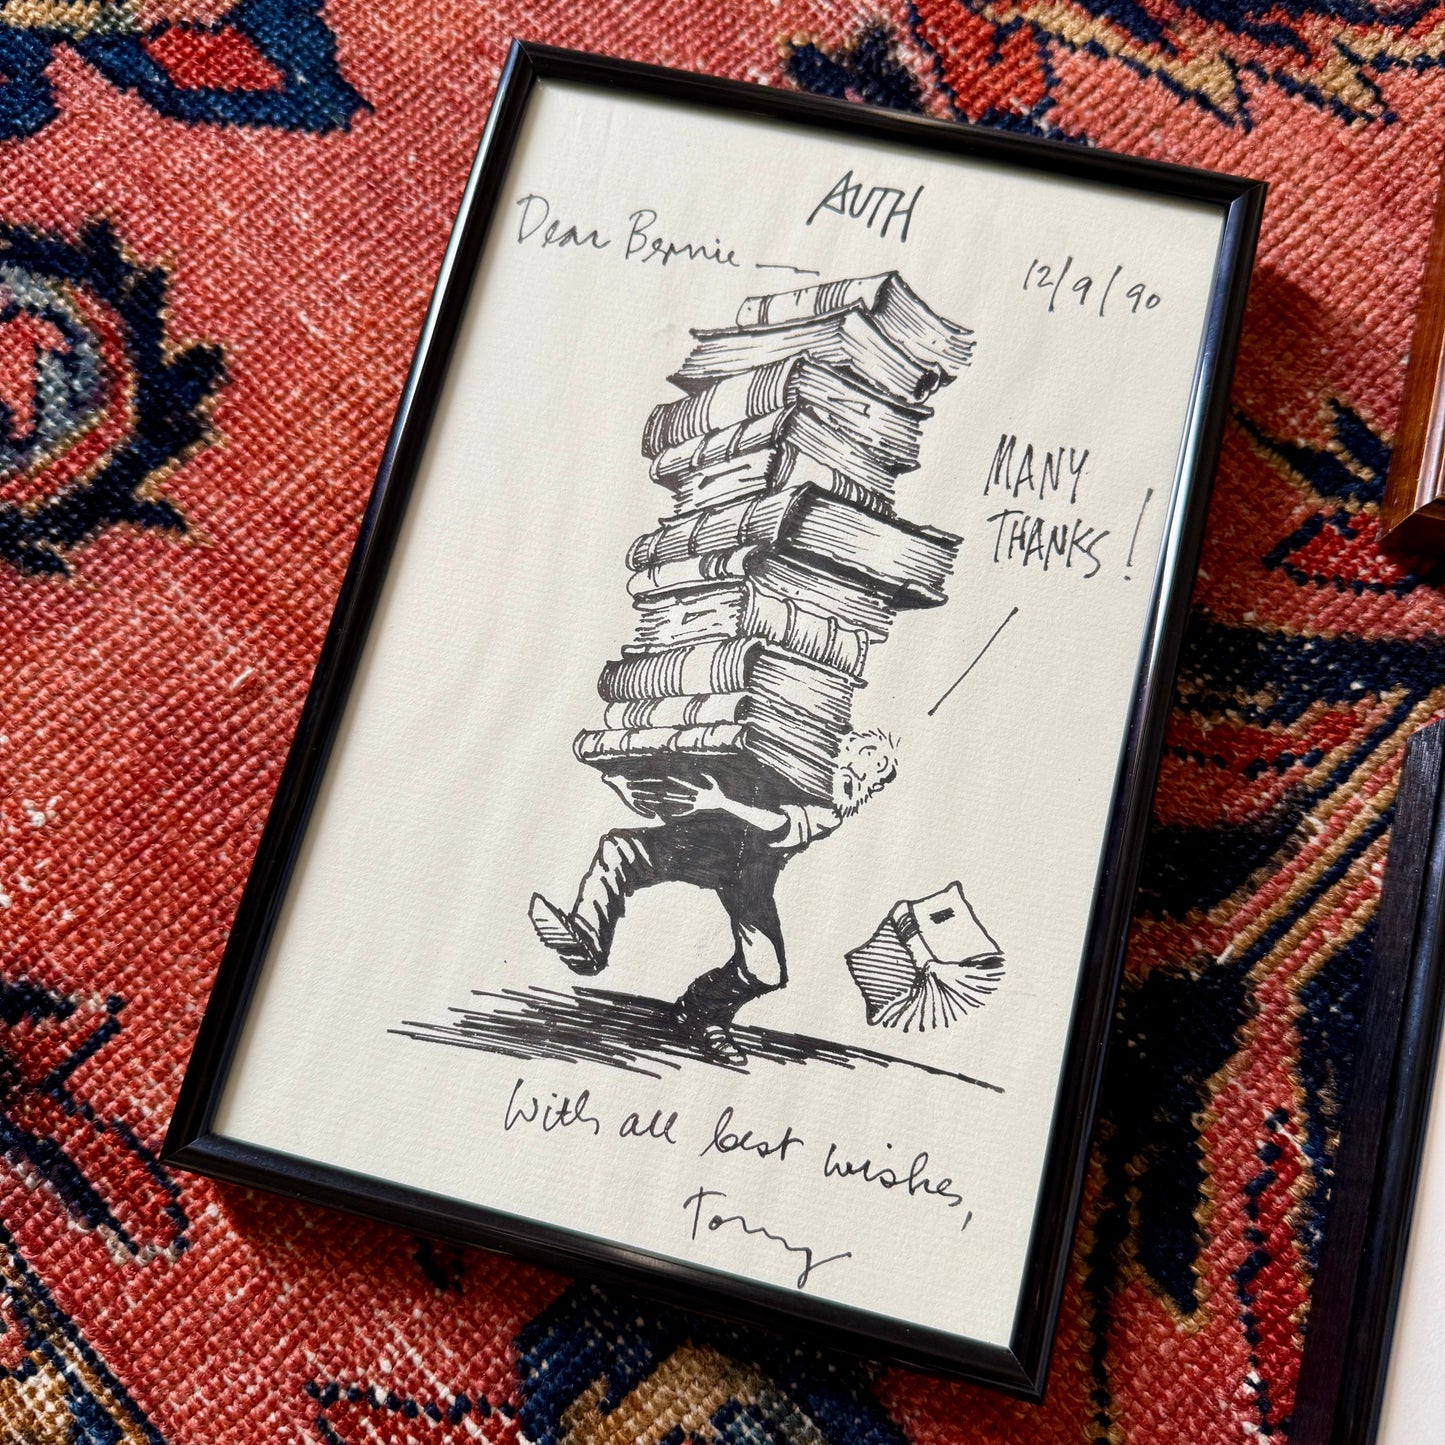 AUTH
Dear Bernie —
12/9/90
MANY
THANKS!
With all best wishes,
Tony